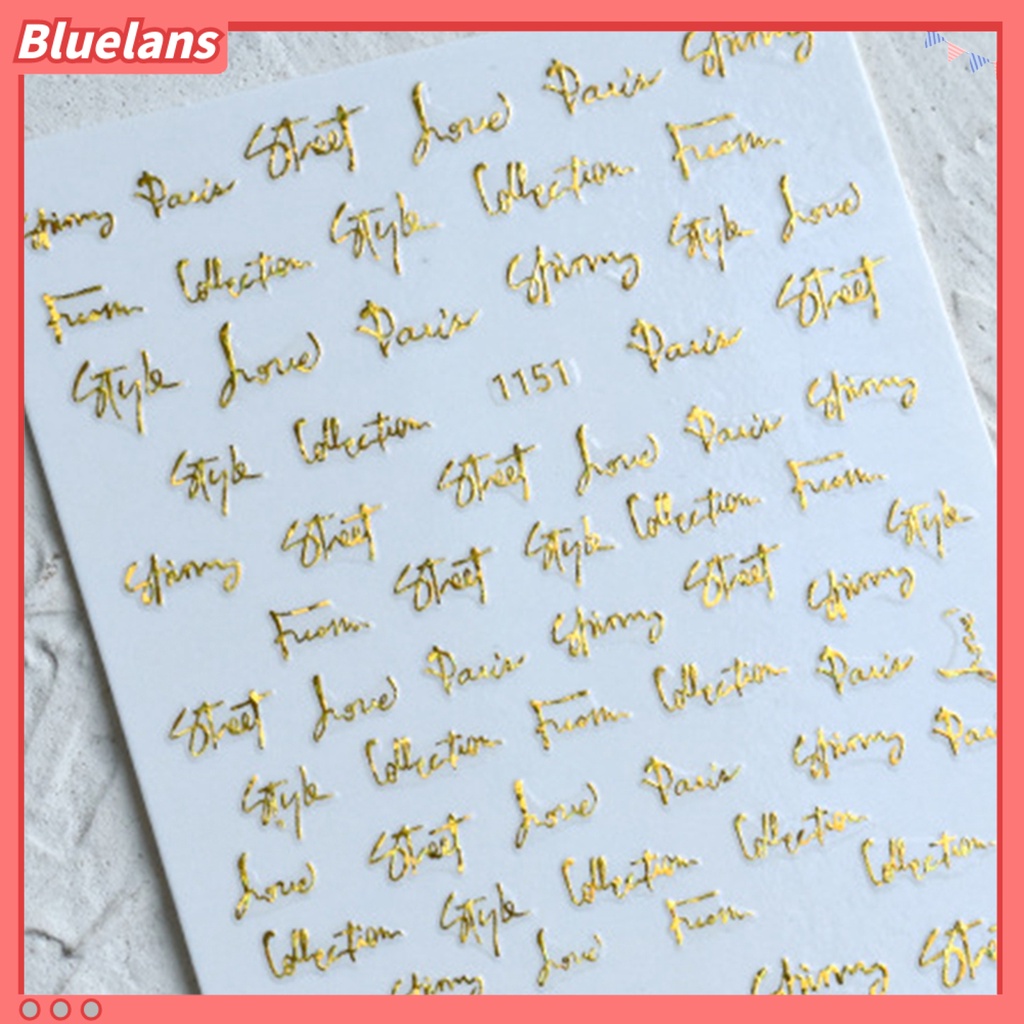 Bluelans
Street Love Paris Strong
Strong Paris Style Collection From
From Collection Strong Style Love
Style Love Paris 1151 Paris Street
Style Collection Street Love Paris Strong
Strong Street Street Style Collection From
From Strong Street Strong Style
Street Love Paris Collection Paris Love
Style Collection From Paris Strong
Love Street Love Collection Collection Collection
Collection Style Love From